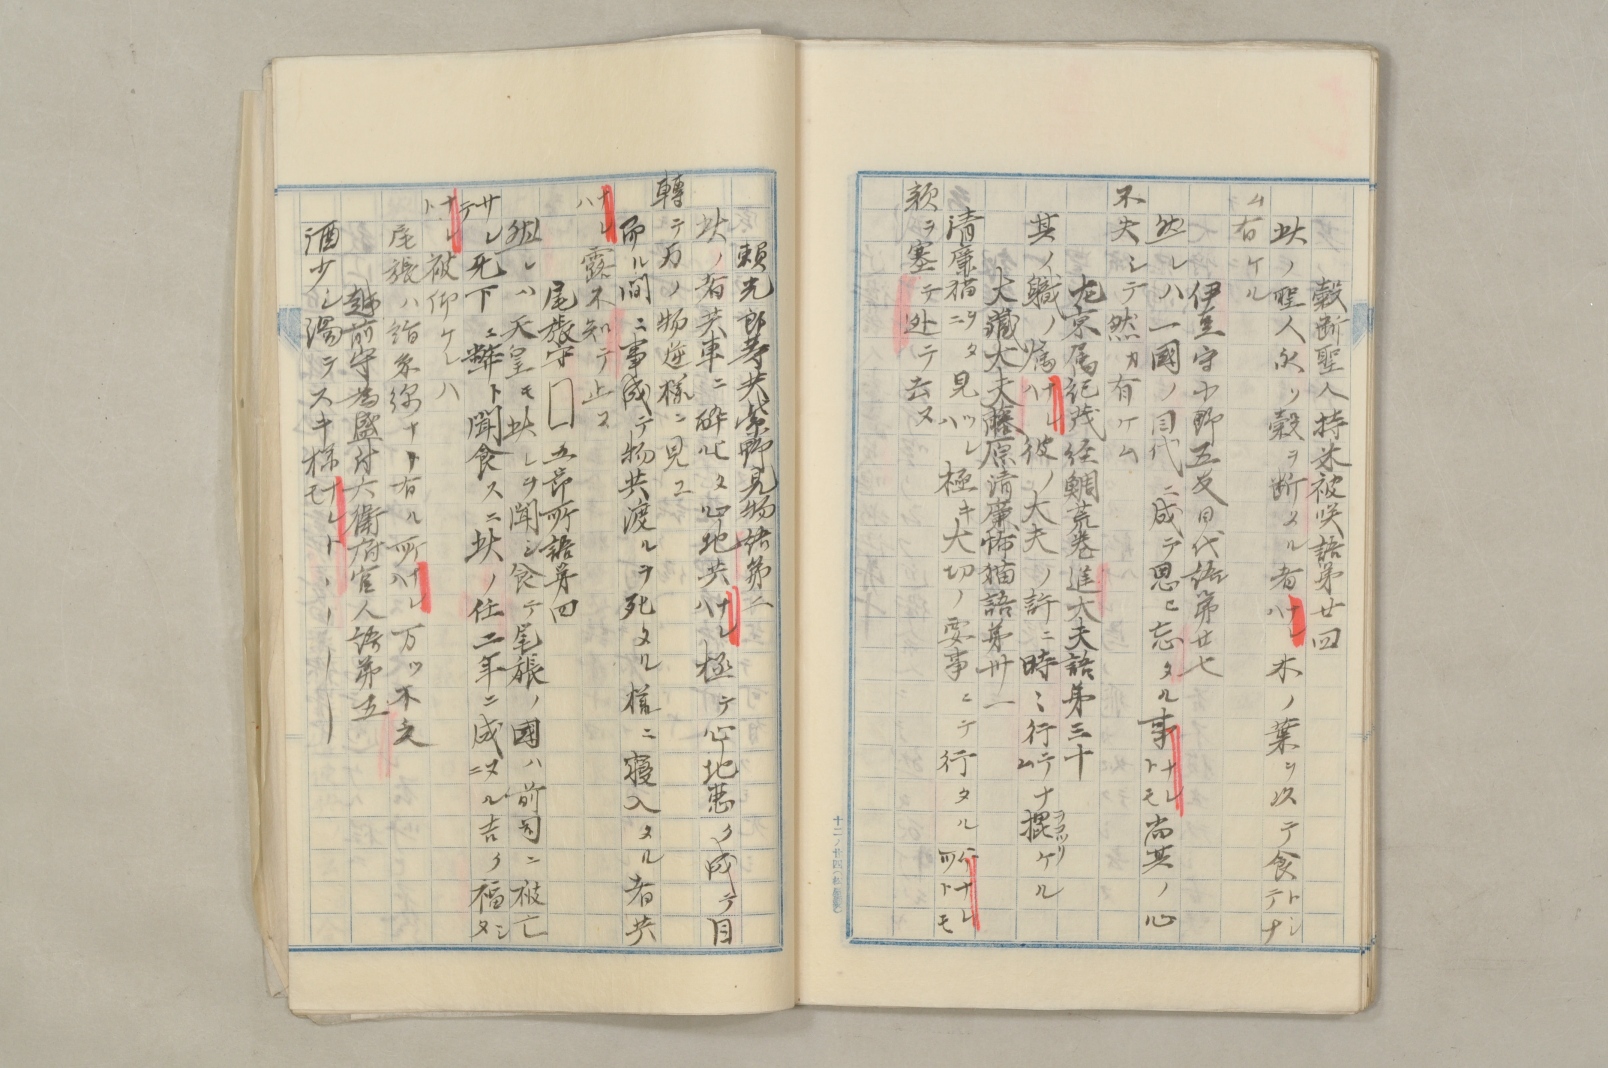 穀断聖人持米被咲語第廿四
此ノ聖人永ク穀ヲ断タル者ナレハ木ノ葉ヲ以テ食トシテナ
ム有ケル
伊豆守小野五友目代語第廿七
然レハ一國ノ目代ニ成テ思ヒ忘タル事ナレトモ尚其ノ心
不失シテ然カ有ケム
左京属紀茂経鯛荒巻進大夫語第三十
其ノ職ノ属ナレハ彼ノ大夫ノ許ニ時ミ行テナム掍ケル
大藏大夫藤原清廉怖猫語第卅一
清廉猫ニタタ見ツレハ極キ大切ノ要事ニテ行タル所ナレトモ
顔ヲ塞テ逃テ去ヌ
十二ノ廿四
頼光郎等共紫野見物語第二
此ノ者共車ニ酔ヒタ心地共ナレハ極テ心地悪ク成テ目
轉テ万ノ物逆様ニ見エ
而ル間ニ事成テ物共渡ルヲ死タル様ニ寝入タル者共
ナレハ露不知テ止ヌ
尾張守□五節所語第四
然レハ天皇モ此レヲ聞シ食テ尾張ノ國ハ前司ニ被亡
サレテ死下ニ弊ト聞食スニ此ノ任二年ニ成ヌルニ吉ク福タシ
ナレト被仰ケレハ
尾張ハ絹糸綿ナト有ル所ナレハ万ツ不乏
越前守為盛付六衛府官人語第五
酒少シ濁テスキ様ナレトモ